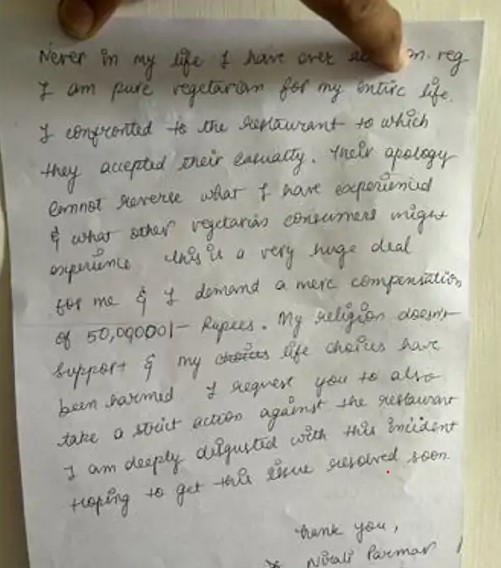 Never in my life I have ever n. reg
I am pure vegetarian for my entire life.
I confronted to the restaurant to which
they accepted their casualty. Their apology
cannot reverse what I have experienced
& what other vegetarian consumers might
experience this is a very huge deal
for me & I demand a mere compensation
of 50,00000/- Rupees. My religion doesn't
support & my choices life choices have
been harmed I request you to also
take a strict action against the restaurant
I am deeply disgusted with this incident
Hoping to get this issue resolved soon
thank you,
Nirali Parmar